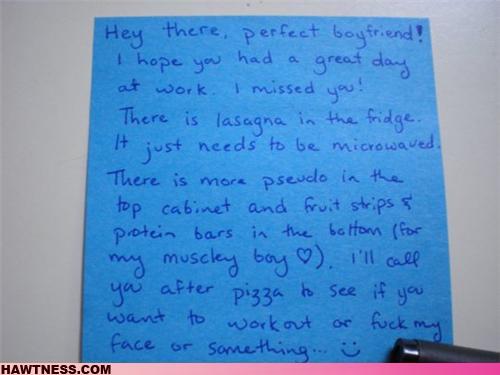 Hey there, perfect boyfriend!
I hope you had a great day
at work. I missed you!
There is lasagna in the fridge.
It just needs to be microwaved.
There is more pseudo in the
top cabinet and fruit strips &
protein bars in the bottom (for
my muscley boy ♡). I'll call
you after pizza to see if you
want to workout or fuck my
face or something...
HAWTNESS.COM